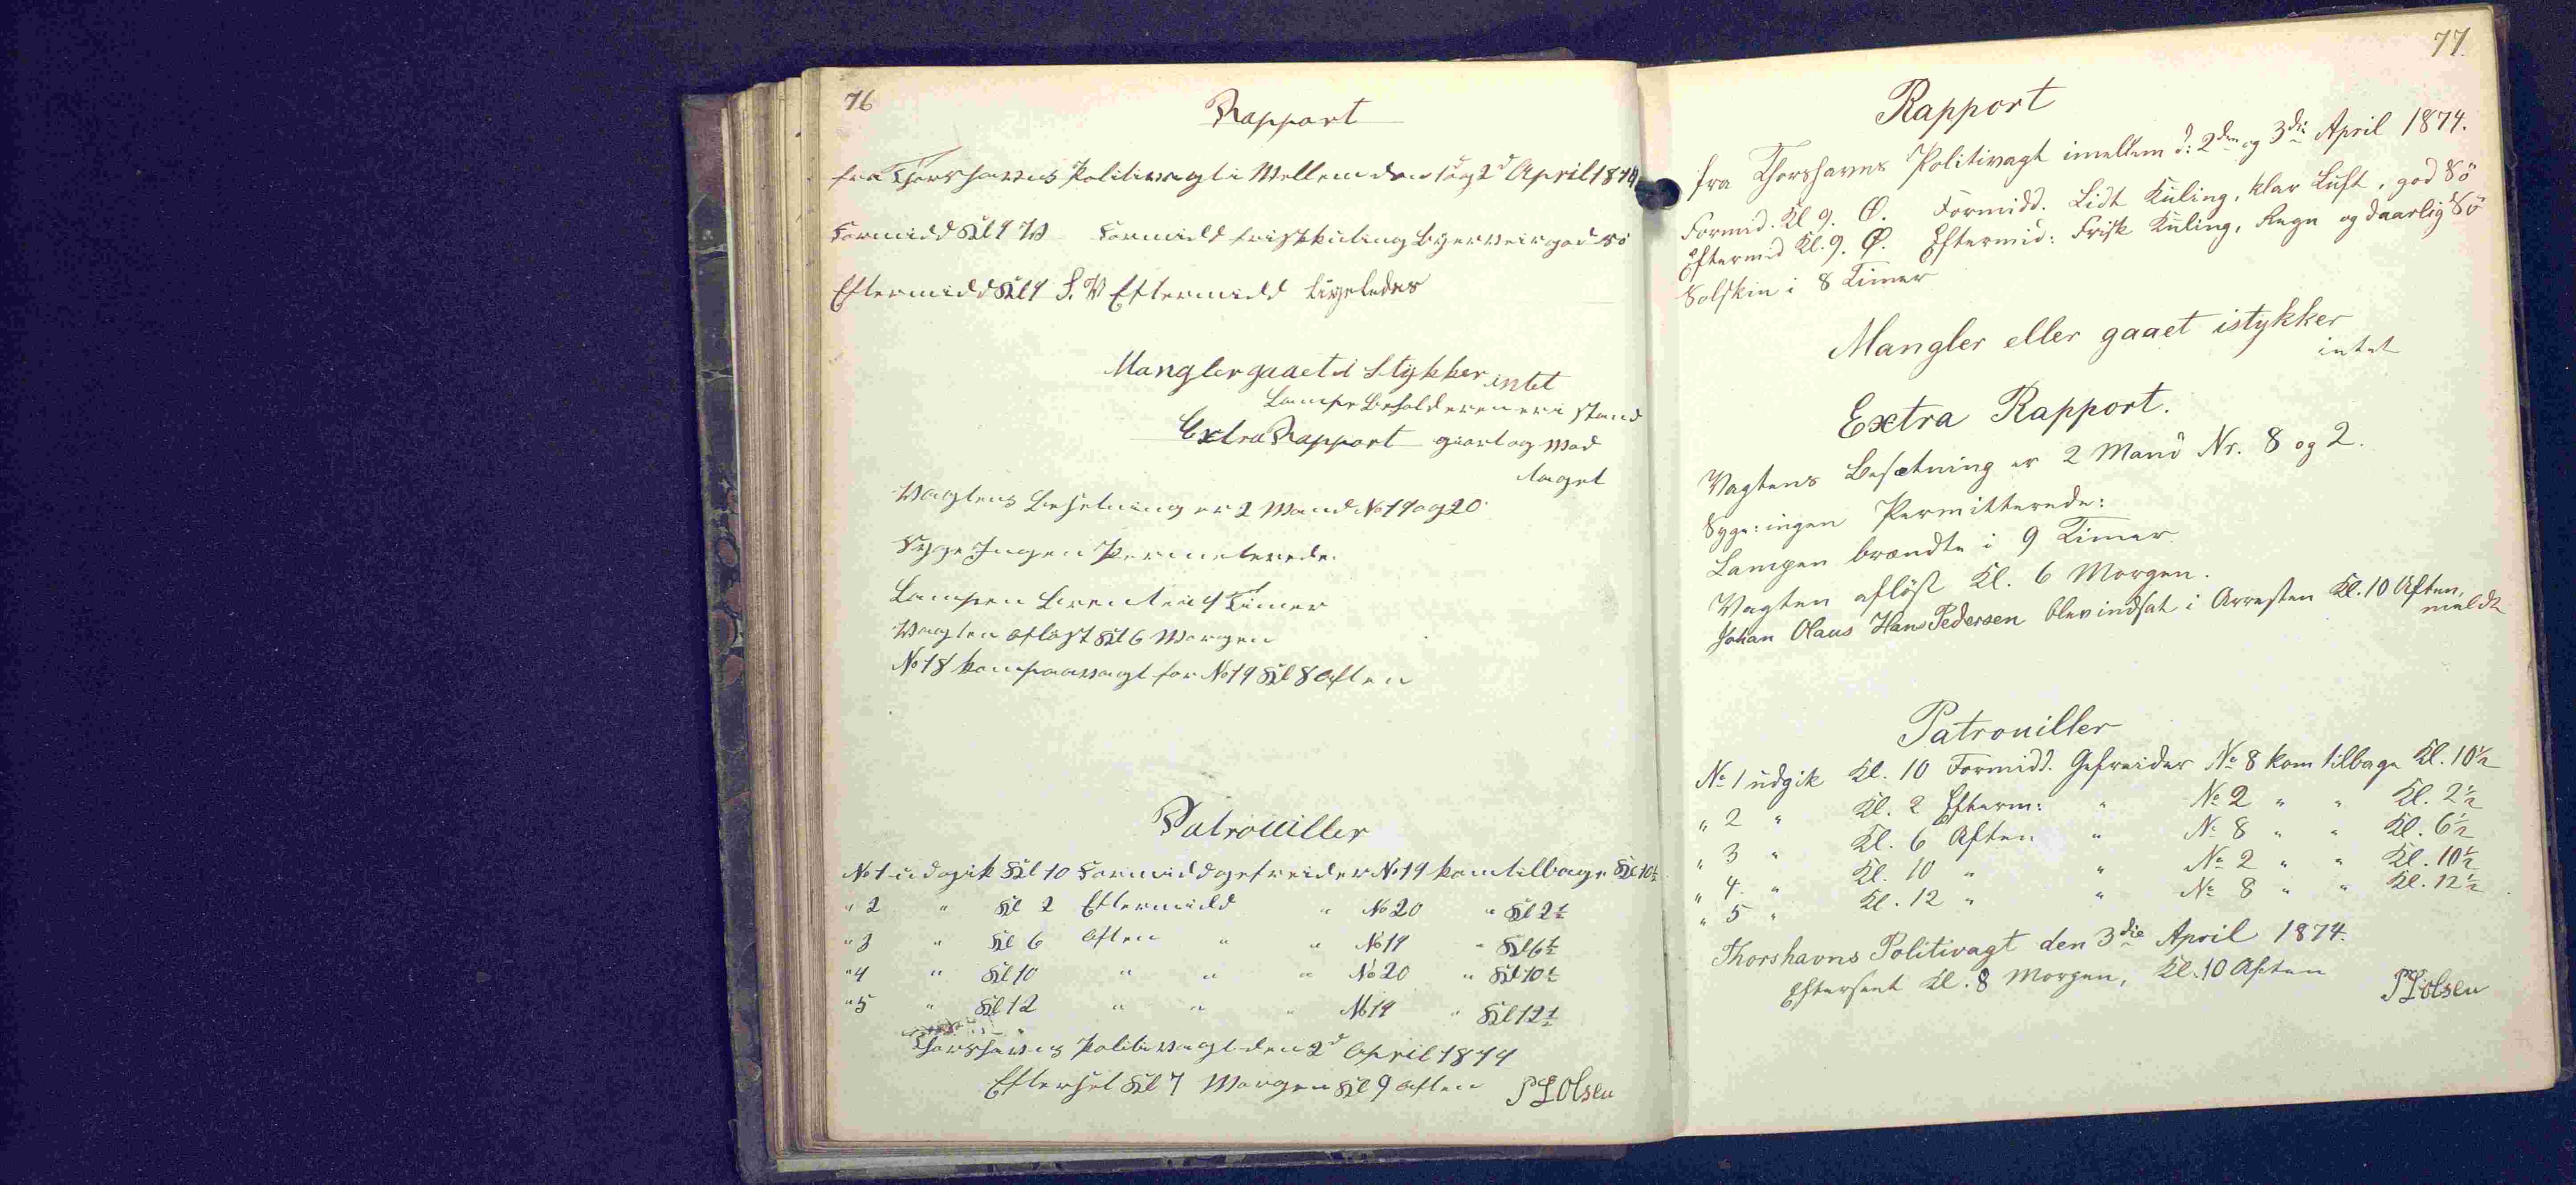 76
Rapport
fra Thorshavns Politivagt i Mellem den 1 og 2d April 1874
Formidd Kl 9 V Formidd frisk kuling byerveir god sö
Eftermidd Kl 9 S. V Eftermidd ligeledes
Mangler gaaet i Stykker intet
Lampe Beholderen er i stand
Extra Rapport giort og Mod
taget
Vagtens Besetning er 2 Mand No 19 og 20
Syge Ingen Permeterede.
Lampen brente i 9 Timer
Vagten aflöst Kl 6 Morgen
No 18 kom paa vagt for No 19 Kl 8 Aften
Patrouiller
No 1 udgik Kl 10 Formidd gefreider No 19 kom tilbage Kl 10½
" 2 " Kl 2 Eftermidd " No 20 " Kl 2½
" 3 " Kl 6 Aften " " No 19 " Kl 6½
" 4 " Kl 10 " " " No 20 " Kl 10½
" 5 " Kl 12 " " " No 19 " Kl 12½
Thorshavns Politivagt den 2d April 1874
Efterset Kl 7 Morgen Kl 9 Aften P L Olsen
77.
Rapport
fra Thorshavns Politivagt imellem d: 2den og 3die April 1874.
Formid. Kl 9. Ø. Formidd. Lidt Kuling, klar Luft, god Sö
Eftermid Kl. 9. Ø. Eftermid: Frisk Kuling, Regn og daarlig Sö
Solskin i 8 Timer
Mangler eller gaaet istykker
intet
Extra Rapport.
Vagtens Besætning er 2 Mand Nr. 8 og 2.
Syge: ingen Permitterede:
Lampen brændte i 9 Timer
Vagten aflöst Kl. 6 Morgen.
Johan Olaus Hans Pedersen blev indsat i Arresten Kl. 10 Aften,
meldt
Patrouiller
No 1 udgik Kl. 10 Formidd. Gefreider No 8 kom tilbage Kl. 10½
" 2 " Kl. 2 Efterm: " No 2 " " Kl. 2½
" 3 " Kl. 6 Aften " No 8 " " Kl. 6½
" 4. " Kl. 10 " " No 2 " " Kl. 10½
" 5 " Kl. 12 " " No 8 " " Kl. 12½
Thorshavns Politivagt den 3die April 1874.
Efterseet Kl. 8 Morgen, Kl. 10 Aften
P L Olsen